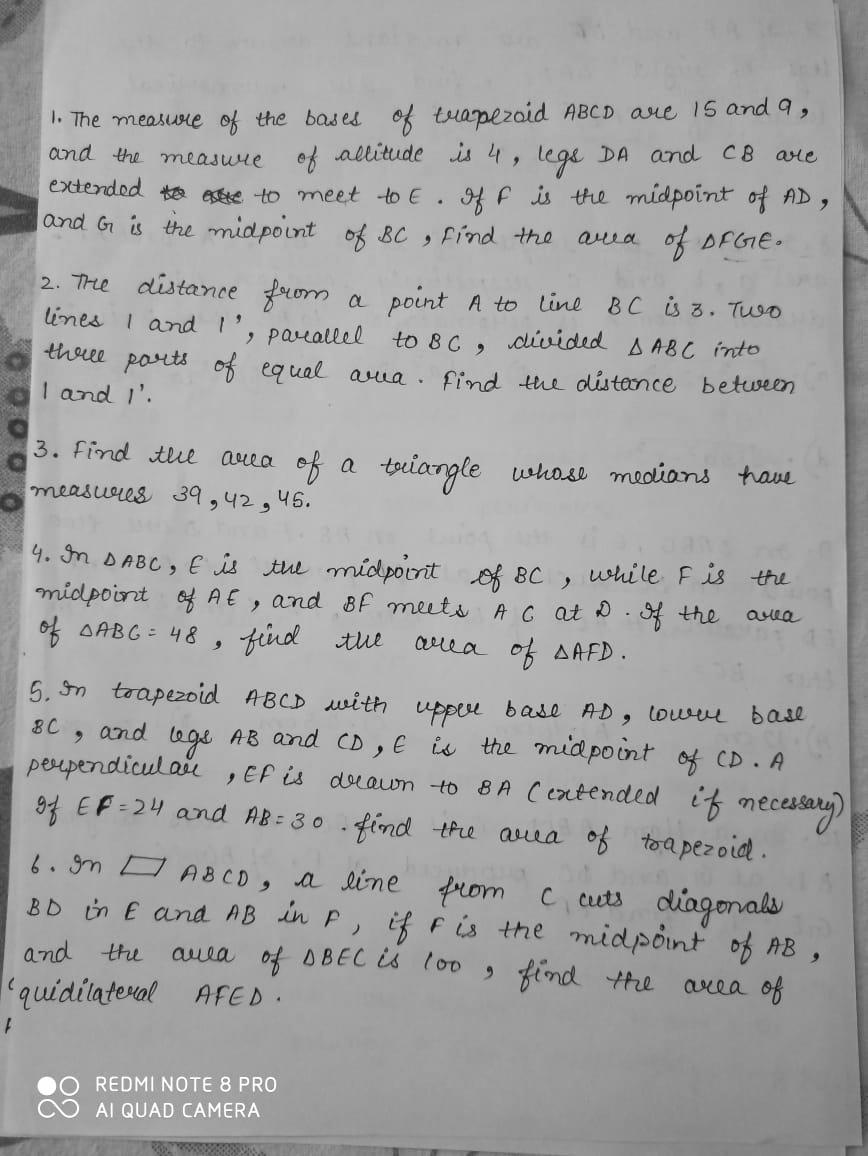 1. The measure of the bases of trapezoid ABCD are 15 and 9,
and the measure of altitude is 4, legs DA and CB are
extended to meet to E. If F is the midpoint of AD,
and G is the midpoint of BC, Find the area of ΔFGE.
2. The distance from a point A to line BC is 3. Two
lines l and l', parallel to BC, divided ΔABC into
three parts of equal area. Find the distance between
l and l'.
3. Find the area of a triangle whose medians have
measures 39, 42, 45.
4. In ΔABC, E is the midpoint of BC, while F is the
midpoint of AE, and BF meets AC at D. If the area
of ΔABC = 48, find the area of ΔAFD.
5. In trapezoid ABCD with upper base AD, lower base
BC, and legs AB and CD, E is the midpoint of CD. A
perpendicular, EF is drawn to BA (extended if necessary)
If EF = 24 and AB = 30. find the area of trapezoid.
6. In ▱ ABCD, a line from C cuts diagonals
BD in E and AB in F, if F is the midpoint of AB,
and the area of ΔBEC is 100, find the area of
quidilateral AFED.
REDMI NOTE 8 PRO
AI QUAD CAMERA